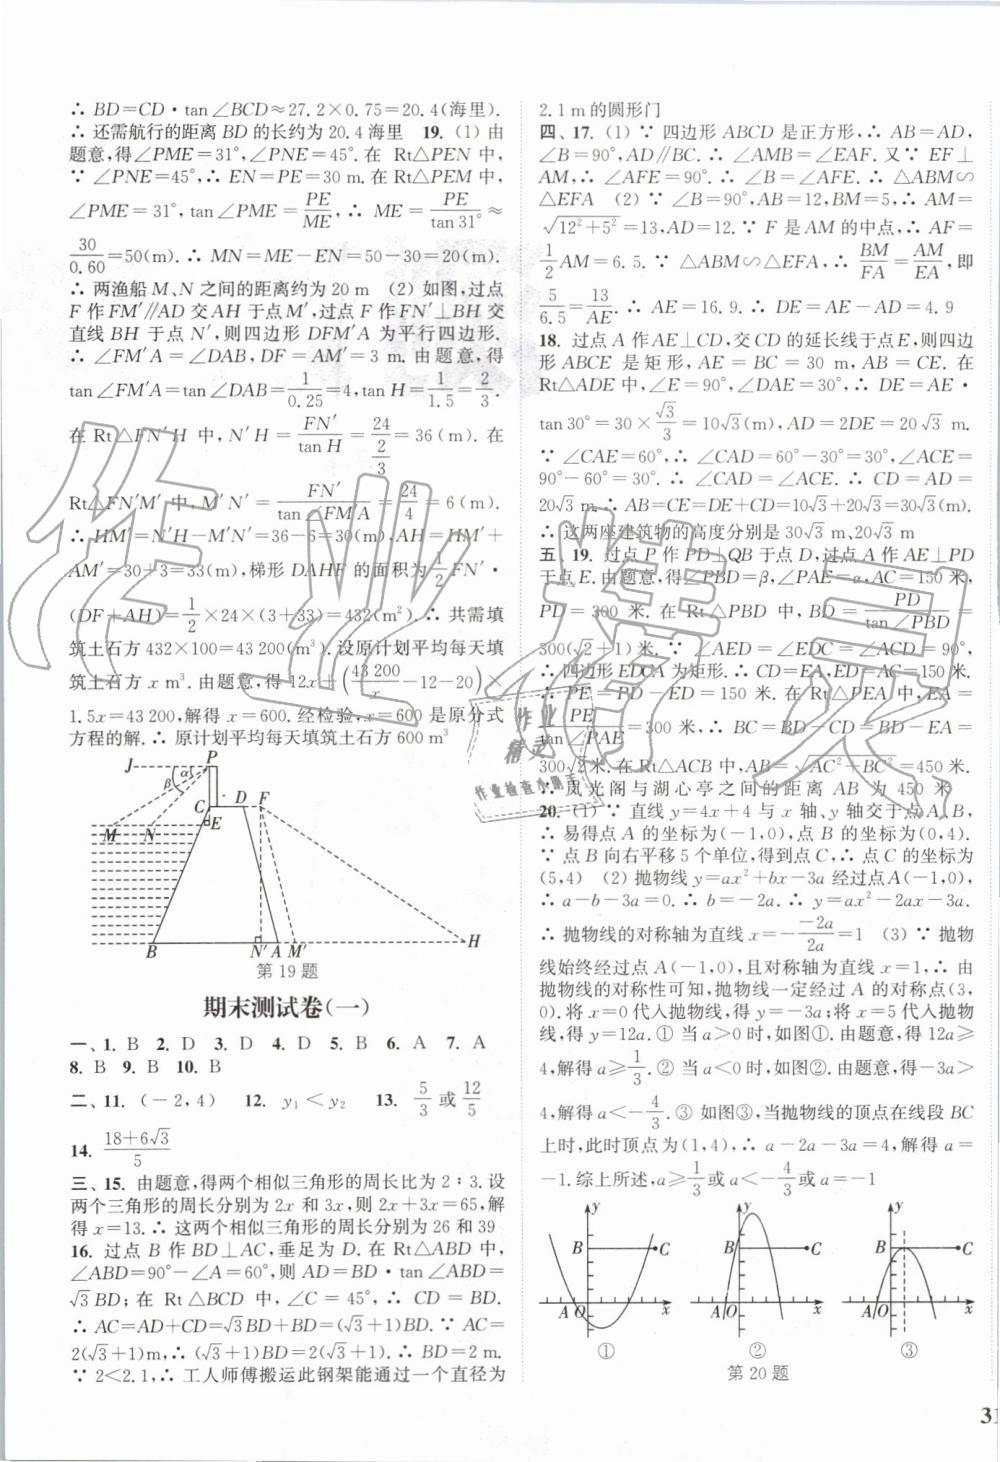 ∴ BD=CD·tan∠BCD≈27.2×0.75=20.4(海里).
∴ 还需航行的距离 BD 的长约为 20.4 海里 19. (1) 由
题意,得∠PME=31°,∠PNE=45°. 在 Rt△PEN 中,
∵ ∠PNE=45°,∴ EN=PE=30 m. 在 Rt△PEM 中,
∠PME=31°,tan∠PME=PE/ME,∴ ME=PE/tan31°≈
30/0.60=50(m). ∴ MN=ME-EN=50-30=20(m).
∴ 两渔船 M、N 之间的距离约为 20 m (2) 如图,过点
F 作 FM′∥AD 交 AH 于点 M′,过点 F 作 FN′⊥BH 交
直线 BH 于点 N′,则四边形 DFM′A 为平行四边形.
∴ ∠FM′A=∠DAB,DF=AM′=3 m. 由题意,得
tan∠FM′A=tan∠DAB=1/0.25=4,tan H=1/1.5=2/3.
在 Rt△FN′H 中,N′H=FN′/tan H=24/(2/3)=36(m). 在
Rt△FN′M′ 中,M′N′=FN′/tan∠FM′A=24/4=6(m).
∴ HM′=N′H-M′N′=36-6=30(m),AH=HM′+
AM′=30+3=33(m),梯形 DAHF 的面积为 1/2 FN′·
(DF+AH)=1/2×24×(3+33)=432(m²). ∴ 共需填
筑土石方 432×100=43 200(m³). 设原计划平均每天填
筑土石方 x m³. 由题意,得 12x+(43 200/x-12-20)×
1.5x=43 200,解得 x=600. 经检验,x=600 是原分式
方程的解. ∴ 原计划平均每天填筑土石方 600 m³
J P α β
C D F
M N E
B N′ A M′ H
第 19 题
期末测试卷(一)
一、1. B 2. D 3. D 4. D 5. B 6. A 7. A
8. B 9. B 10. B
二、11. (-2,4) 12. y₁<y₂ 13. 5/3 或 12/5
14. (18+6√3)/5
三、15. 由题意,得两个相似三角形的周长比为 2∶3. 设
两个三角形的周长分别为 2x 和 3x,则 2x+3x=65,解
得 x=13. ∴ 这两个相似三角形的周长分别为 26 和 39
16. 过点 B 作 BD⊥AC,垂足为 D. 在 Rt△ABD 中,
∠ABD=90°-∠A=60°,则 AD=BD·tan∠ABD=
√3BD;在 Rt△BCD 中,∠C=45°,∴ CD=BD.
∴ AC=AD+CD=√3BD+BD=(√3+1)BD. ∵ AC=
2(√3+1)m,∴ (√3+1)BD=2(√3+1). ∴ BD=2 m.
∵ 2<2.1,∴ 工人师傅搬运此钢架能通过一个直径为
2.1 m 的圆形门
四、17. (1) ∵ 四边形 ABCD 是正方形,∴ AB=AD,
∠B=90°,AD∥BC. ∴ ∠AMB=∠EAF. 又∵ EF⊥
AM,∴ ∠AFE=90°. ∴ ∠B=∠AFE. ∴ △ABM∽
△EFA (2) ∵ ∠B=90°,AB=12,BM=5,∴ AM=
√(12²+5²)=13,AD=12. ∵ F 是 AM 的中点,∴ AF=
1/2 AM=6.5. ∵ △ABM∽△EFA,∴ BM/FA=AM/EA,即
5/6.5=13/AE. ∴ AE=16.9. ∴ DE=AE-AD=4.9
18. 过点 A 作 AE⊥CD,交 CD 的延长线于点 E,则四边
形 ABCE 是矩形,AE=BC=30 m,AB=CE. 在
Rt△ADE 中,∠E=90°,∠DAE=30°,∴ DE=AE·
tan 30°=30×√3/3=10√3(m),AD=2DE=20√3 m.
∵ ∠CAE=60°,∴ ∠CAD=60°-30°=30°,∠ACE=
90°-60°=30°. ∴ ∠CAD=∠ACE. ∴ CD=AD=
20√3 m. ∴ AB=CE=DE+CD=10√3+20√3=30√3(m).
∴ 这两座建筑物的高度分别是 30√3 m、20√3 m
五、19. 过点 P 作 PD⊥QB 于点 D,过点 A 作 AE⊥PD
于点 E. 由题意,得∠PBD=β,∠PAE=α,AC=150 米,
PD=300 米. 在 Rt△PBD 中,BD=PD/tan∠PBD=
300(√2+1)米. ∵ ∠AED=∠EDC=∠ACD=90°,
∴ 四边形 EDCA 为矩形. ∴ CD=EA,ED=AC=150 米.
∴ PE=PD-ED=150 米. 在 Rt△PEA 中,EA=
PE/tan∠PAE=300 米,∴ BC=BD-CD=BD-EA=
300√2米. 在 Rt△ACB 中,AB=√(AC²+BC²)=450 米.
∴ 凤凰阁与湖心亭之间的距离 AB 为 450 米
20. (1) ∵ 直线 y=4x+4 与 x 轴、y 轴交于点 A、B,
∴ 易得点 A 的坐标为(-1,0),点 B 的坐标为(0,4).
∵ 点 B 向右平移 5 个单位,得到点 C,∴ 点 C 的坐标为
(5,4) (2) 抛物线 y=ax²+bx-3a 经过点 A(-1,0),
∴ a-b-3a=0. ∴ b=-2a. ∴ y=ax²-2ax-3a.
∴ 抛物线的对称轴为直线 x=-(-2a)/2a=1 (3) ∵ 抛物
线始终经过点 A(-1,0),且对称轴为直线 x=1,∴ 由
抛物线的对称性可知,抛物线一定经过 A 的对称点(3,
0). 将 x=0 代入抛物线,得 y=-3a;将 x=5 代入抛物
线,得 y=12a. ① 当 a>0 时,如图①. 由题意,得 12a≥
4,解得 a≥1/3. ② 当 a<0 时,如图②. 由题意,得-3a>
4,解得 a<-4/3. ③ 如图③,当抛物线的顶点在线段 BC
上时,此时顶点为(1,4),∴ a-2a-3a=4,解得 a=
-1. 综上所述,a≥1/3 或 a<-4/3 或 a=-1
y B C A O x
①
y B C A O x
②
y B C A O x
③
第 20 题
31
作业精灵
作业
精灵
作业检查小助手